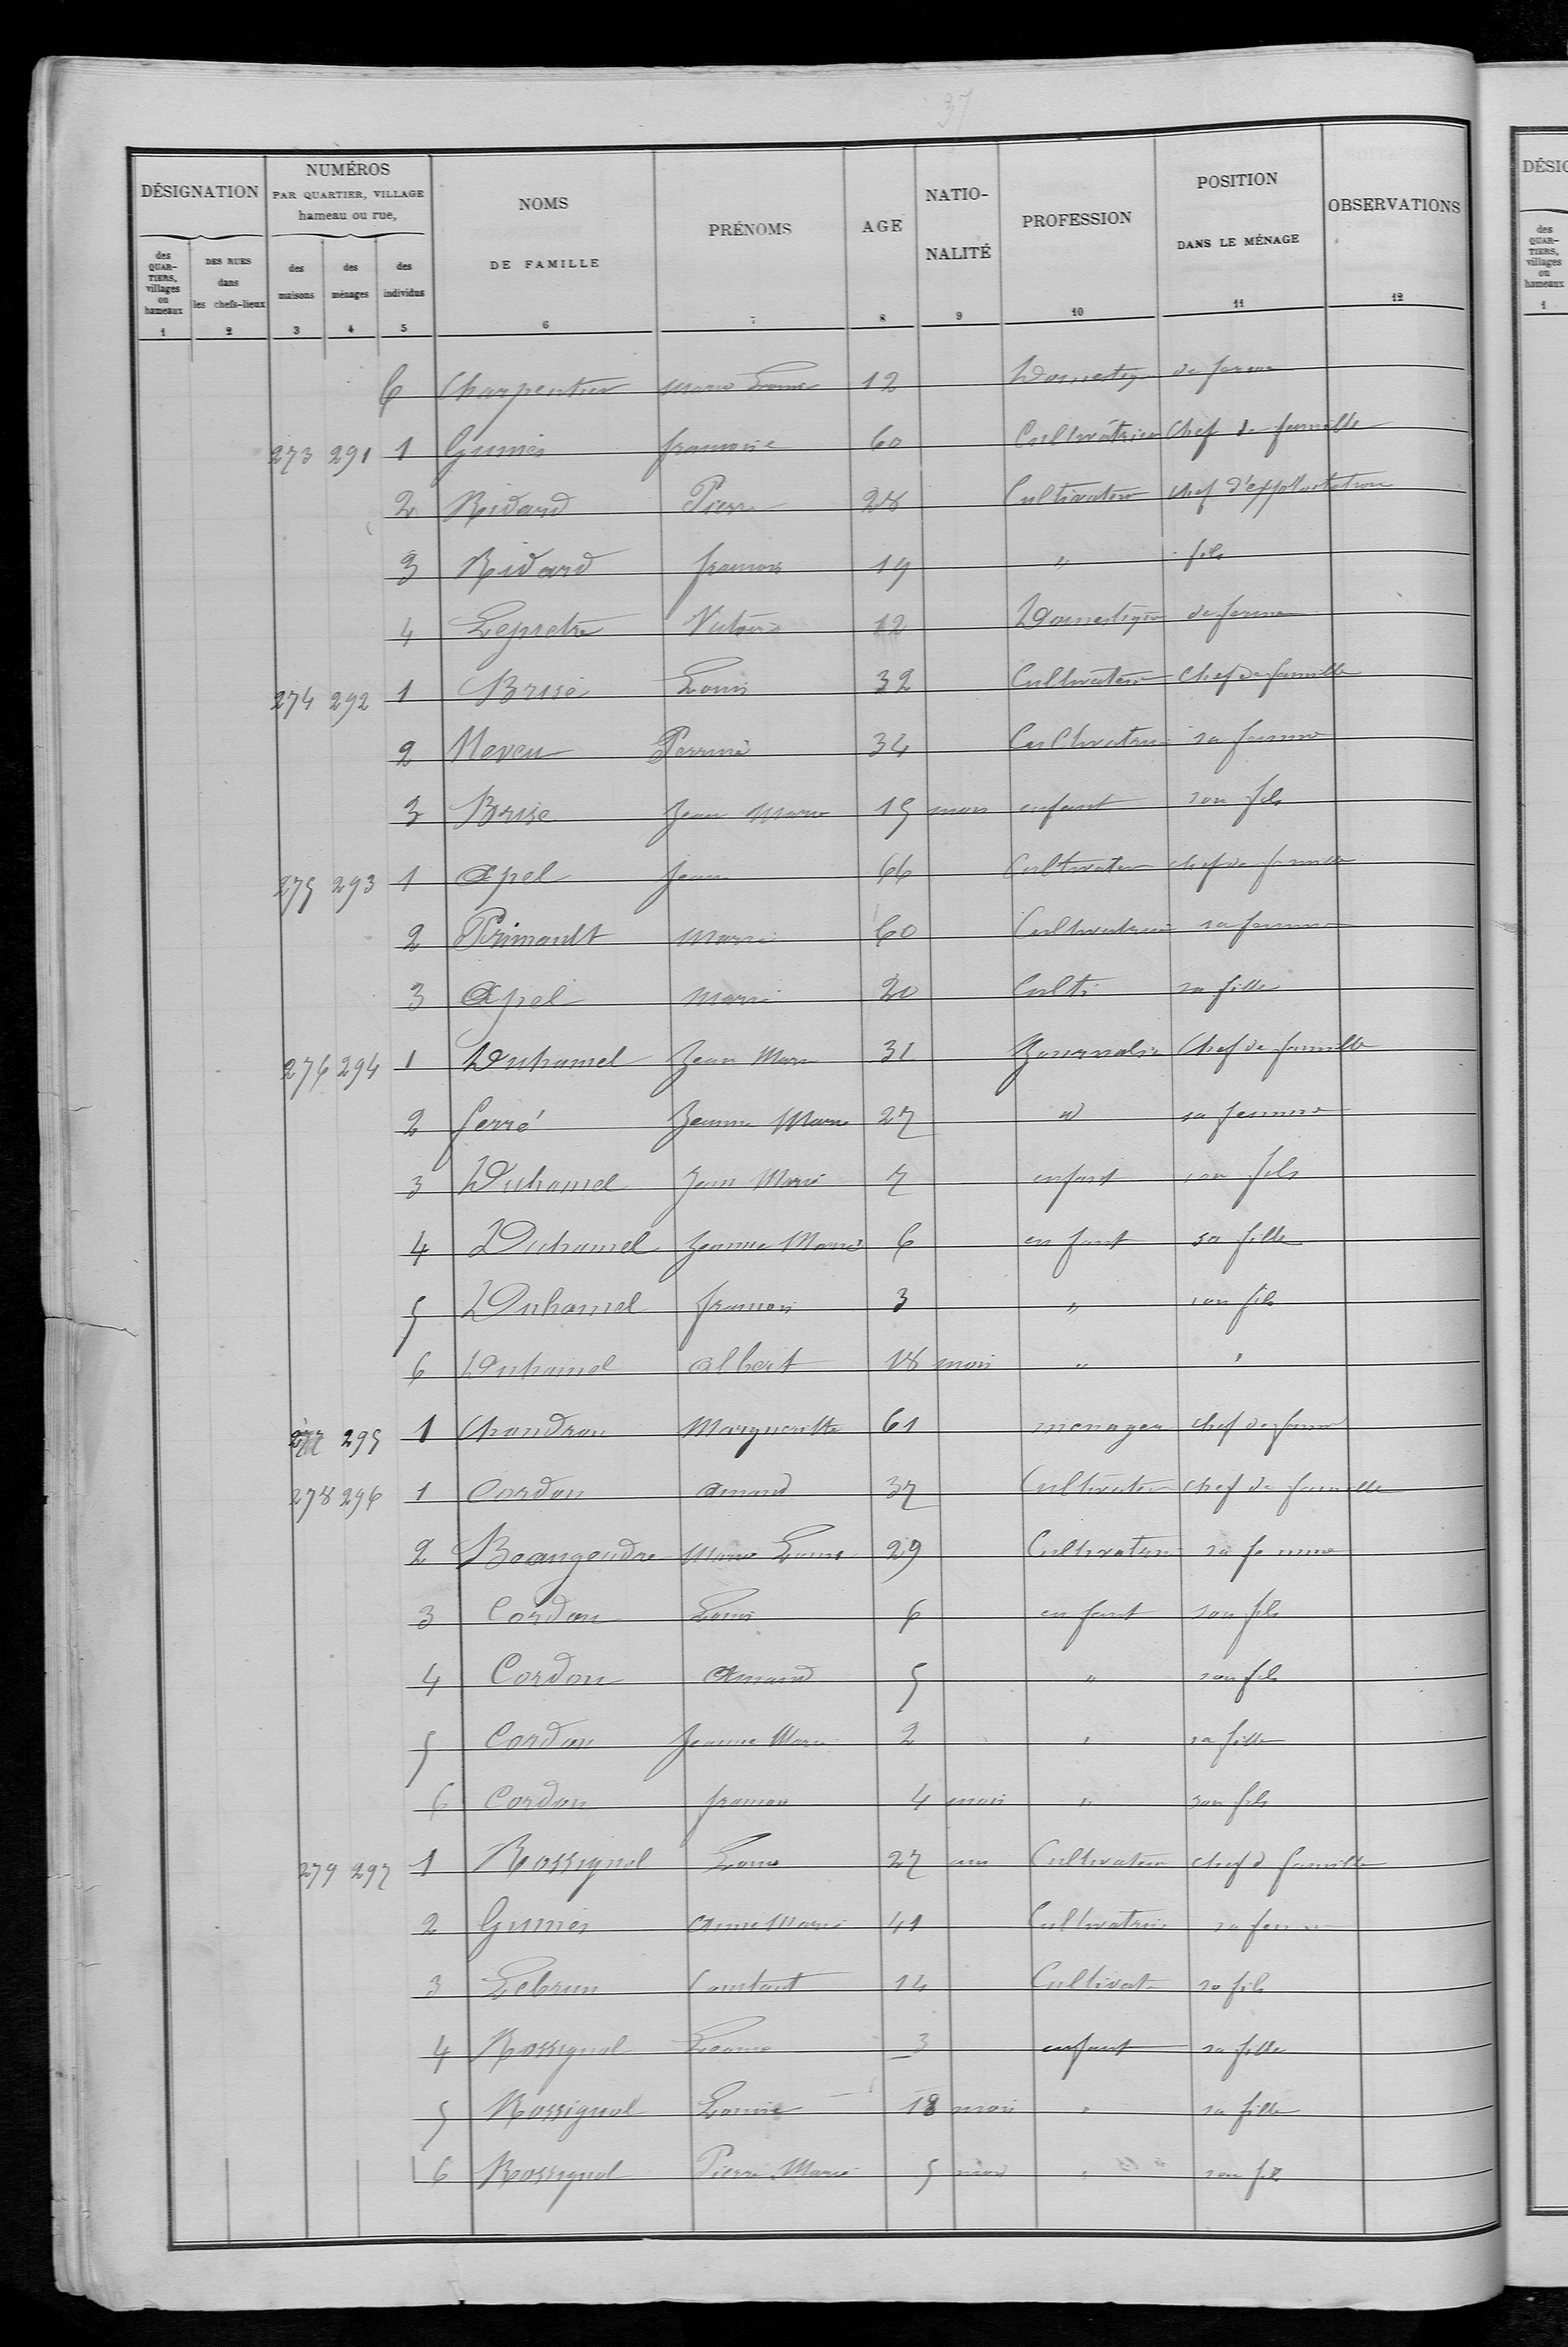 37
DÉSIGNATION NUMÉROS PAR QUARTIER, VILLAGE hameau ou rue, NOMS DE FAMILLE PRÉNOMS AGE NATIO-NALITÉ PROFESSION POSITION DANS LE MÉNAGE OBSERVATIONS
des QUAR-TIERS, villages ou hameaux DES RUES dans les chefs-lieux des maisons des ménages des individus
1 2 3 4 5 6 7 8 9 10 11 12
6 Charpentier Marie Louise 12 Domestiq de ferme
273 291 1 françoise 60 Cultivatrice Chef de famille
2 Ridard Pierre 28 Cultivateur chef d'exploitation
3 Ridard françois 19 " fils
4 Lepretre Victoire 12 Domestique de ferme
274 292 1 Brisé Louis 32 Cultivateur Chef de famille
2 Neveu Perrine 34 Cultivatrice sa femme
3 Brise Jean Marie 15 mois enfant son fils
275 293 1 Apel Jean 66 Cultivateur chef de famille
2 Primault Marie 60 Cultivatrice sa femme
3 Apel Marie 20 Culti sa fille
276 294 1 Duhamel Jean Marie 31 Journalier Chef de famille
2 ferré Jeanne Marie 27 id sa femme
3 Duhamel Jean Marie 7 enfant son fils
4 Duhamel Jeanne Marie 6 enfant sa fille
5 Duhamel françois 3 " son fils
6 Duhamel Albert 18 mois " "
277 295 1 Chaudron Margueritte 61 menagere chef de fam
278 296 1 Cordon Amand 37 Cultivateur chef de famille
2 Beaugendre Marie Louise 29 Cultivatrice sa femme
3 Cordon Louis 6 enfant son fils
4 Cordon Amand 5 " son fils
5 Cordon Jeanne Marie 2 " sa fille
6 Cordon françois 4 mois " son fils
279 297 1 Rossignol Louis 27 ans Cultivateur chef d famille
2 Anne Marie 41 Cultivatrice sa femme
3 Lebrun Constant 14 Cultivat so fils
4 Rossignol 3 enfant sa fille
5 Rossignol Louise 18 mois " sa fille
6 Rossignol Pierre Marie 5 mois " son fils
DÉSIG
des QUAR-TIERS, villages ou hameaux
1